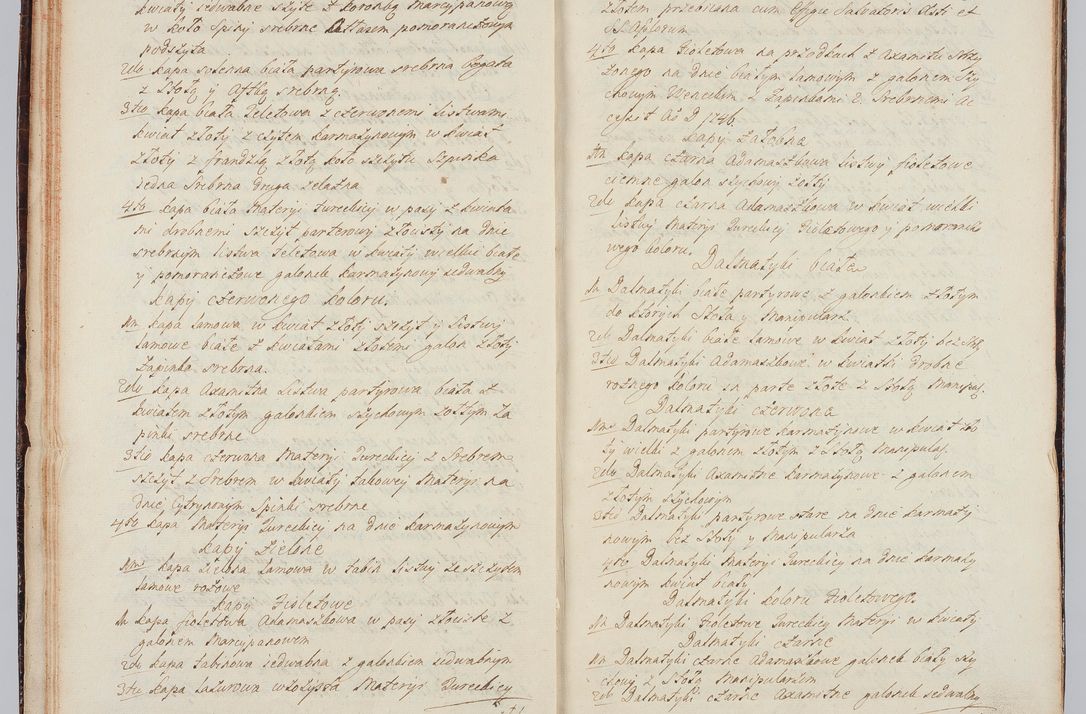 kwiaty jedwabne szyte z koronką marcypanową
w koło spinki srebrne Atłasem pomoranczowym
podszyta
2do kapa suienna biała partyrowa srebrna bogata
z Stołą y Aftką srebrną
3tio kapa biała Teletowa z czerwonemi listwami
kwiat złoty z czytem karmazynowym w kwiat
złoty z frandzlą złotą koło szczytu Szpinka
jedna srebrna druga zelazna
4to kapa biała Materyi tureckiej w pasy z kwiata
mi drobnemi szczyt parterowy złousty na dnie
srebrnym listwa teletowa w kwiaty wielkie białe
y pomoranczowe galonek karmazynowy jedwabny
kapy czerwonego koloru.
1mo kapa lamowa w kwiat złoty szczyt y listwy
lamowe białe z kwiatami złotemi galon złoty
Zapinka srebrna.
2do kapa Axamitna listwa partyrowa biała z
kwiatem złotym galonkiem szychowym zołtym za
pinki srebrne
3tio kapa czerwona Materyi Tureckiej z srebrem
szczyt z srebrem w kwiaty takowej Materyi na
dnie Cytrynowym Spinki srebrne
4to kapa Materyi Tureckiej na dnie karmazynowym
kapy zielone
1mo kapa zielona lamowa w tabin listwy ze szczytem
lamowe rozowe
kapy Fioletowe
1a kapa fioletowa Adamaszkowa w pasy złouste z
galonem Marcypanowem
2do kapa tabinowa jedwabna z galonkiem jedwabnym
3tio kapa lazurowa Materyi Tureckiey
złotem przerabiana cum Effigie Salvatoris Xsti et
SS. Aplorum
4to kapa Fioletowa na przodkach z Axamitu strzy
zonego na dnie białym lamowym z galonem Szy
chowym Węnckim z Zapinkami 2. Srebrnemi Ac
cessit Ao D 1746.
kapy Załobne
1mo kapa czarna Adamaszkowa listwy fioletowe
ciemne galon szychowy zołty
2do kapa czarna Adamaszkowa w kwiat wielki
listwy Materyi Tureckiey Fioletowego y pomoranczo
wego koloru.
Dalmatyki białe
1a Dalmatyki białe partyrowe z galonkiem złotym
do ktorych Stoła y Manipularz
2do Dalmatyki białe lamowe w kwiat złoty bez
3tio Dalmatyki Adamaszkowe w kwiatki drobne
roznego koloru in parte złote z Stołą Manipul.
Dalmatyki czerwone
1mo Dalmatyki partyrowe karmazynowe w kwiat zło
ty wielki z galonem złotym z Stołą Manipularz
2do Dalmatyki Axamitne karmazynowe z galonem
złotym szychowym
3tio Dalmatyki partyrowe stare na dnie karmazy
nowym bez Stoły y Manipularza
4to Dalmatyki Materyi Tureckiey na dnie karmazy
nowym kwiat biały
Dalmatyki koloru Fioletowego.
1a Dalmatyki Fioletowe Tureckiey Materyi w kwiaty
Dalmatyki Czarne
1mo Dalmatyki czarne Adamaszkowe galonek biały szy
chowy z Stołą Manipularzem
2do Dalmatyki czarne Axamitne galonek jedwabny